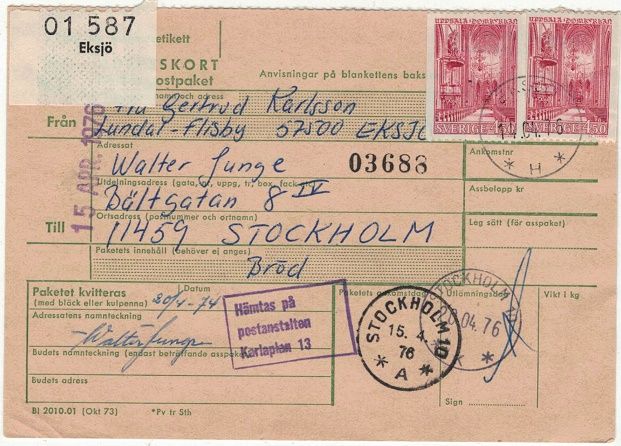 01 587
Eksjö
etikett
SKORT
ostpaket
Anvisningar på blankettens baks
och adress
UPPSALA DOMKYRKA
SVERIGE 4
UPPSALA DOMKYRKA
SVERIGE 450
Från
Gertrud Karlsson
Lundal-Flisby 57500 EKSJÖ
15 APR. 1976
Adressat
Walter Junge
03688
Ankomstnr
H
Utdelningsadress (gata, nr, uppg, tr, box, fack
Assbelopp kr
Bältgatan 8 IV
Ortsadress (postnummer och ortnamn)
Leg sätt (för asspaket)
Till
11459 STOCKHOLM
Paketets innehåll (behöver ej anges)
Bröd
Paketet kvitteras
(med bläck eller kulpenna)
Datum
20/4-74
Paketets ankomstdag
Utlämningsdag
Vikt i kg
Adressatens namnteckning
Walter Junge
Hämtas på
postanstalten
Karlaplan 13
STOCKHOLM 10
15. 4.
76
A
STOCKHOLM
04.76
Budets namnteckning (endast beträffande asspaket)
Budets adress
Sign
BI 2010.01 (Okt 73)
*Pv tr 5th